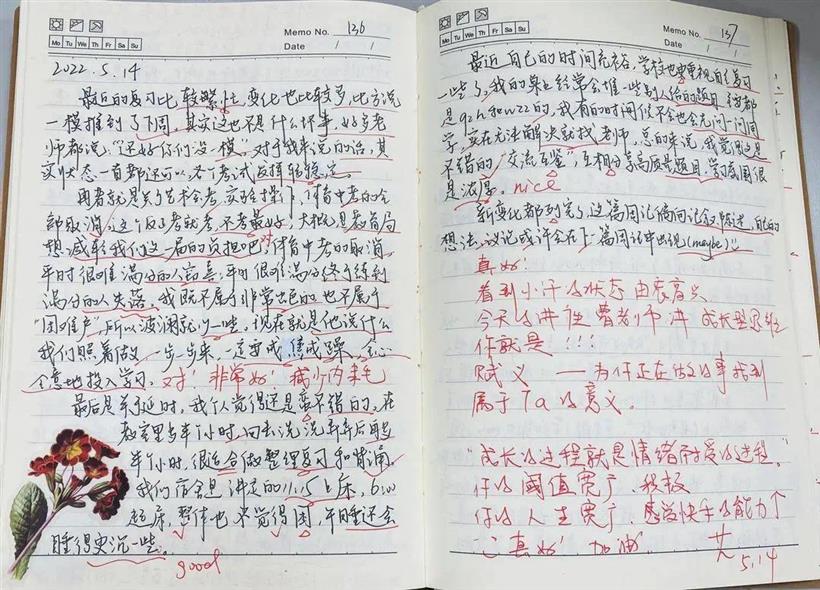 Memo No. 136
Mo Tu We Th Fr Sa Su
Date / /
2022.5.14
最近的复习比较繁忙，变化也比较多，比方说
一模推到了下周，其实这也不是什么坏事，好多老
师都说："还好你们没一模"，对于我来说的话，其
实状态一直都还可以，各个考试发挥较稳定。
再者就是关于艺术会考，实验操作，体育中考的全
部取消，这个反正考就考，不考最好，大概是教育局
想减轻我们这一届的负担吧，对体育中考的取消，
平时很难满分的人高兴；平时很难满分终于练到
满分的人失落，我既不属于非常出色的也不属于
"困难户"，所以波澜就小一些，现在就是他说什么
我们照着做，一步步来，一定要戒焦戒躁，全心
全意地投入学习。对！非常好！减少内耗
最后是关于延时，我个人觉得还是蛮不错的，在
教室里多半个小时，回去洗洗弄弄后再多
半个小时，很适合做整理复习和背诵。
我们宿舍是讲定的11:15上床，6:00
起床，整体也不觉得困，午睡还会
睡得更沉一些。
good
Memo No. 137
Mo Tu We Th Fr Sa Su
Date / /
最近自己的时间充裕，学校也更重视自主复习
一些了，我的桌上经常会堆一些别人给的题目，
是qzh和wzz的，我有的时间不会也会先问一问同
学，实在无法解决就找老师，总的来说，我觉得这是
不错的"交流互鉴"，互相分享高质量题目，学习氛围很
是浓厚。nice
新变化都到完了，这篇周记偏向记叙和陈述，自己的
想法、议论或许会在下一篇周记中出现(maybe)
真好！
看到小汗的状态由衷高兴
今天的讲座 曹老师讲 成长型思维
你就是！！！
赋义 —— 为你正在做的事找到
属于Ta的意义。
"成长的过程就是情绪耐受的过程。"
你的阈值宽广、积极
你的人生宽广、感激快乐的能力↑
真好！加油！
5.14